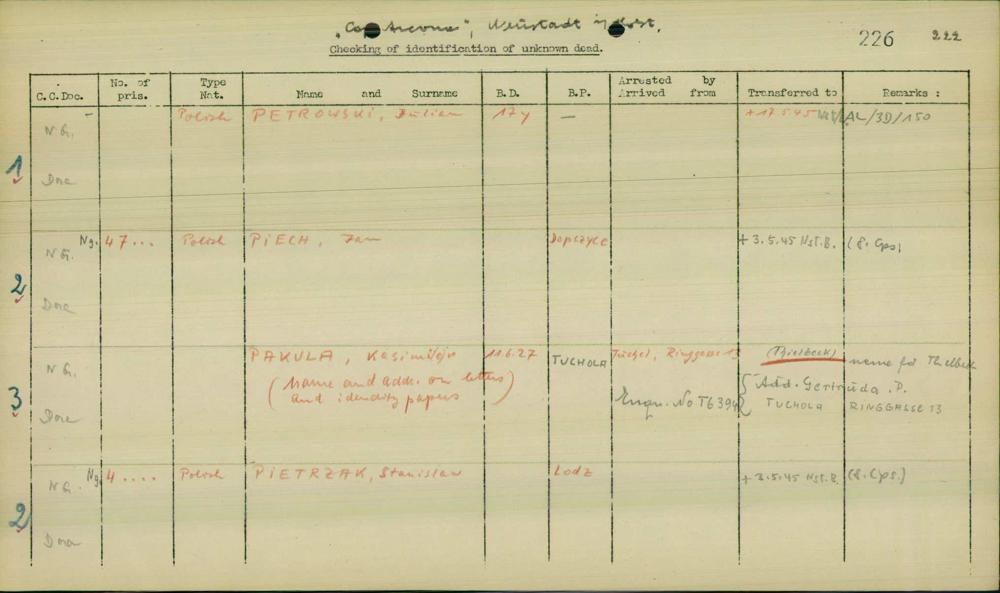 "Cap Arcona", Neustadt i/Holst.
226 222
Checking of identification of unknown dead.
C.C.Doc. No. of pris. Type Nat. Name and Surname B.D. B.P. Arrested by Arrived from Transferred to Remarks :
1 N.G. - Polish PETROWSKI, Julian 17y — + 17.5.45 AL/3D/150
Dora
2 N.G. Ng. 47... Polish PIECH, Jan Dopczyce + 3.5.45 Nst.B. (8. Cps)
Dora
3 N.G. PAKULA, Kasimi 11.6.27 TUCHOLA Tuchel, Ringgasse 13 (Thielbeck) name fd Thielbeck
(Name and add. on letters and identity papers)
Dora Enqu. No T6394 { Add. Gertruda .P.
TUCHOLA RINGGASSE 13
2 N.G. Ng 4.... Polish PIETRZAK, Stanislaw Lodz + 3.5.45 Nst.B. (8. Cps.)
Dora